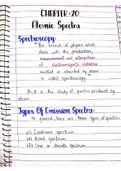 CHAPTER:20
Atomic Spectra
Spectroscopy:
The branch of physics which
deals with the production,
measurement and interaction
of electromagnetic radiation
emitted or absorbed by atoms
is called spectroscopy.
It is the study of spectra produced by
atoms.
Types Of Emission Spectra:
In general, there are three types of spectra.
(i) Continuous spectrum
(ii) Band spectrum
(iii) Line or discrete spectrum